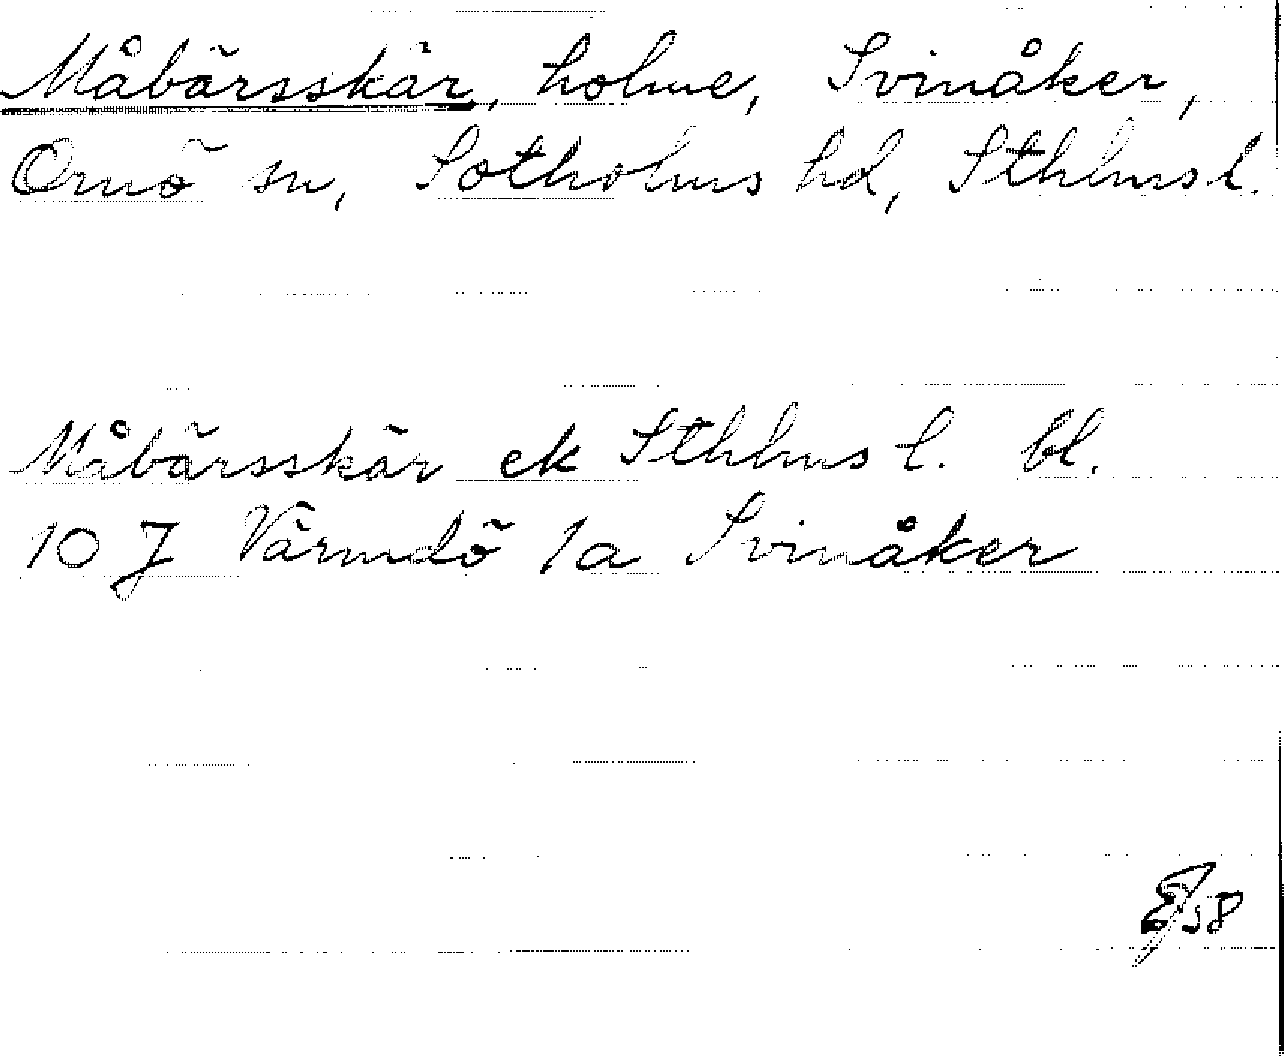 Måbärsskär, holme, Svinåker,
Ornö sn, Sotholms hd, Sthlms l.
Måbärsskär ek Sthlms l. bl.
10 J Värmdö 1a Svinåker
EJ 58